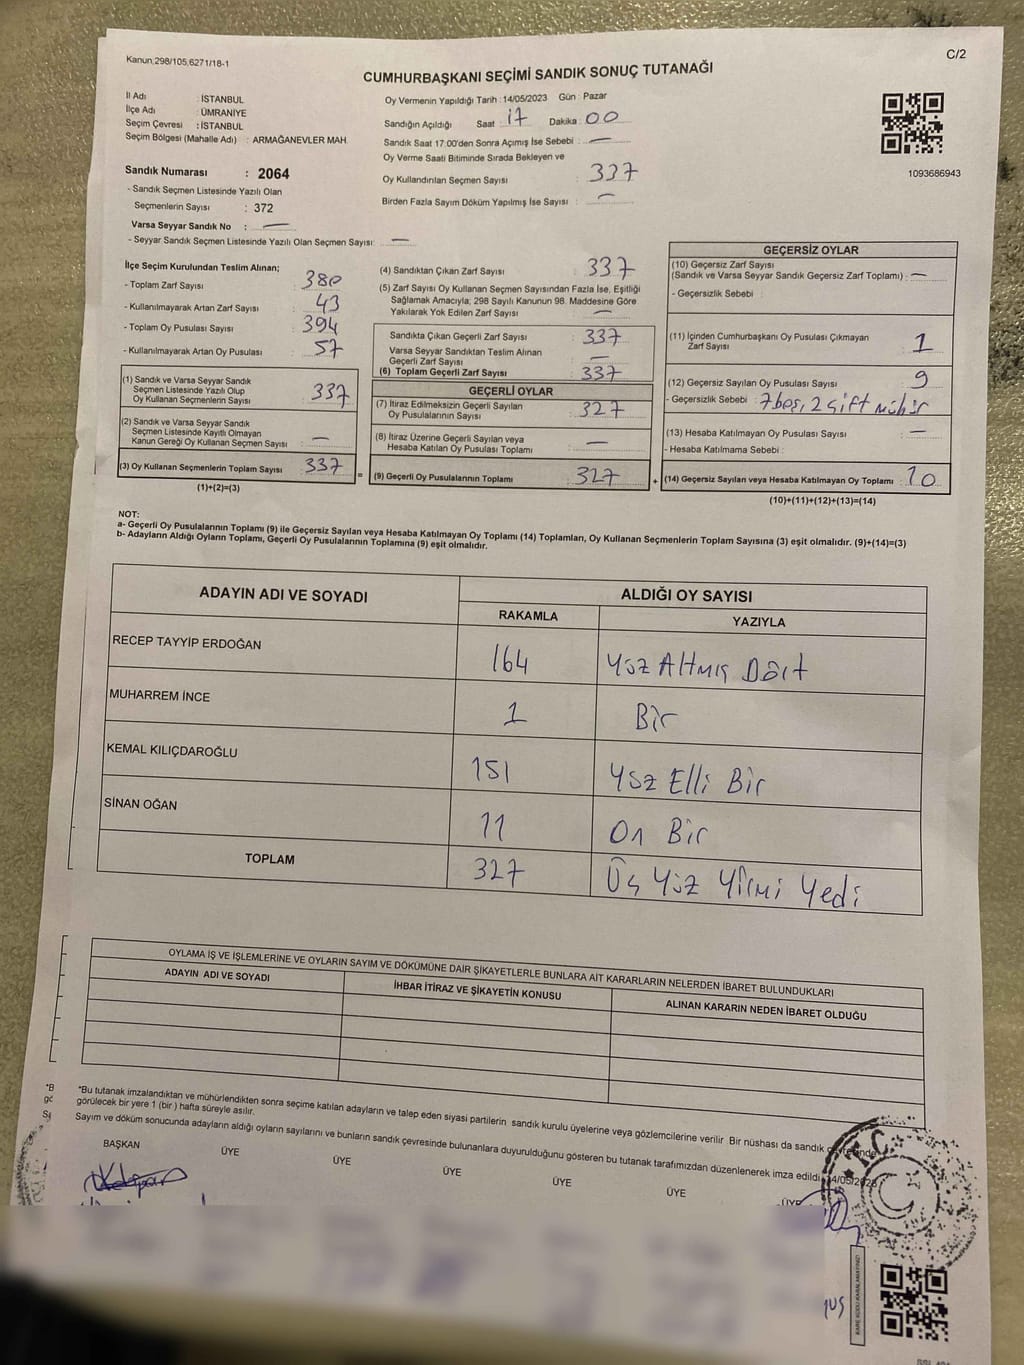 Kanun,298/105,6271/18-1
C/2
CUMHURBAŞKANI SEÇİMİ SANDIK SONUÇ TUTANAĞI
İl Adı : İSTANBUL
İlçe Adı : ÜMRANİYE
Seçim Çevresi : İSTANBUL
Seçim Bölgesi (Mahalle Adı) : ARMAĞANEVLER MAH.
Sandık Numarası : 2064
- Sandık Seçmen Listesinde Yazılı Olan
Seçmenlerin Sayısı : 372
Varsa Seyyar Sandık No : —
- Seyyar Sandık Seçmen Listesinde Yazılı Olan Seçmen Sayısı: —
Oy Vermenin Yapıldığı Tarih : 14/05/2023 Gün : Pazar
Sandığın Açıldığı Saat : 17 Dakika : 00
Sandık Saat 17:00'den Sonra Açımış İse Sebebi : —
Oy Verme Saati Bitiminde Sırada Bekleyen ve
Oy Kullandırılan Seçmen Sayısı : 337
Birden Fazla Sayım Döküm Yapılmış İse Sayısı : —
1093686943
İlçe Seçim Kurulundan Teslim Alınan;
- Toplam Zarf Sayısı : 380
- Kullanılmayarak Artan Zarf Sayısı : 43
- Toplam Oy Pusulası Sayısı : 394
- Kullanılmayarak Artan Oy Pusulası : 57
(1) Sandık ve Varsa Seyyar Sandık
Seçmen Listesinde Yazılı Olup
Oy Kullanan Seçmenlerin Sayısı : 337
(2) Sandık ve Varsa Seyyar Sandık
Seçmen Listesinde Kayıtlı Olmayan
Kanun Gereği Oy Kullanan Seçmen Sayısı : —
(3) Oy Kullanan Seçmenlerin Toplam Sayısı : 337
(1)+(2)=(3)
=
(4) Sandıktan Çıkan Zarf Sayısı : 337
(5) Zarf Sayısı Oy Kullanan Seçmen Sayısından Fazla İse, Eşitliği
Sağlamak Amacıyla; 298 Sayılı Kanunun 98. Maddesine Göre
Yakılarak Yok Edilen Zarf Sayısı : —
Sandıkta Çıkan Geçerli Zarf Sayısı : 337
Varsa Seyyar Sandıktan Teslim Alınan
Geçerli Zarf Sayısı : —
(6) Toplam Geçerli Zarf Sayısı : 337
GEÇERLİ OYLAR
(7) İtiraz Edilmeksizin Geçerli Sayılan
Oy Pusulalarının Sayısı : 327
(8) İtiraz Üzerine Geçerli Sayılan veya
Hesaba Katılan Oy Pusulası Toplamı : —
(9) Geçerli Oy Pusulalarının Toplamı : 327
+
GEÇERSİZ OYLAR
(10) Geçersiz Zarf Sayısı
(Sandık ve Varsa Seyyar Sandık Geçersiz Zarf Toplamı) : —
- Geçersizlik Sebebi :
(11) İçinden Cumhurbaşkanı Oy Pusulası Çıkmayan
Zarf Sayısı : 1
(12) Geçersiz Sayılan Oy Pusulası Sayısı : 9
- Geçersizlik Sebebi : 7 boş, 2 çift mühür
(13) Hesaba Katılmayan Oy Pusulası Sayısı : —
- Hesaba Katılmama Sebebi :
(14) Geçersiz Sayılan veya Hesaba Katılmayan Oy Toplamı : 10
(10)+(11)+(12)+(13)=(14)
NOT:
a- Geçerli Oy Pusulalarının Toplamı (9) ile Geçersiz Sayılan veya Hesaba Katılmayan Oy Toplamı (14) Toplamları, Oy Kullanan Seçmenlerin Toplam Sayısına (3) eşit olmalıdır. (9)+(14)=(3)
b- Adayların Aldığı Oyların Toplamı, Geçerli Oy Pusulalarının Toplamına (9) eşit olmalıdır.
ADAYIN ADI VE SOYADI
ALDIĞI OY SAYISI
RAKAMLA YAZIYLA
RECEP TAYYİP ERDOĞAN 164 Yüz Altmış Dört
MUHARREM İNCE 1 Bir
KEMAL KILIÇDAROĞLU 151 Yüz Elli Bir
SİNAN OĞAN 11 On Bir
TOPLAM 327 Üç Yüz Yirmi Yedi
OYLAMA İŞ VE İŞLEMLERİNE VE OYLARIN SAYIM VE DÖKÜMÜNE DAİR ŞİKAYETLERLE BUNLARA AİT KARARLARIN NELERDEN İBARET BULUNDUKLARI
ADAYIN ADI VE SOYADI İHBAR İTİRAZ VE ŞİKAYETİN KONUSU ALINAN KARARIN NEDEN İBARET OLDUĞU
*Bu tutanak imzalandıktan ve mühürlendikten sonra seçime katılan adayların ve talep eden siyasi partilerin sandık kurulu üyelerine veya gözlemcilerine verilir Bir nüshası da sandık
görülecek bir yere 1 (bir ) hafta süreyle asılır.
Sayım ve döküm sonucunda adayların aldığı oyların sayılarını ve bunların sandık çevresinde bulunanlara duyurulduğunu gösteren bu tutanak tarafımızdan düzenlenerek imza edildi. 14/05/2023
BAŞKAN ÜYE ÜYE ÜYE ÜYE ÜYE ÜYE
T.C.
KARE KODU KARALAMAYINIZ!